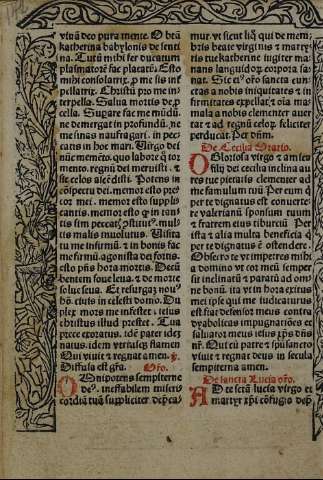 viuū deo pura mente. O btā
katherina babylonis de senti
na. Tutū mihi fer ducatum
plasmatorē fac placatū. Esto
mihi consolatrix. p me sis in
pellatrix. Christū pro me in
terpella. Salua mortis de pcella.
ne demergat in profundū. ne
me sinas naufragari. in pec
catis in hoc mari. Virgo dei
tormento. regnū dei meruisti.
memor esto pre
cor mei. memor esto suppli
cantis. memor esto
malis inuolutus. Visita
tu me infirmū. in bonis fac
me firmū. agonista dei fortis.
esto pns hora mortis. Decū
bentem foue leua. de morte
solue seua. Et resurgaz nouꝰ
hō. ciuis in celesti domo. Du
plex mors me infestet.
christus illud prestet. Tua
prece exoratus. idē pater idē
natus. idem vtriusqꝫ flamen
Qui viuit & regnat amen.
Diffusa est gra. Oro.
Omnipotens sempiterne
deꝰ. ineffabilem miseri
cordiā tuā suppliciter depca-
mur. vt sicut liqͥ qui de mem
bris beate virginis & martyris
tue katherine iugiter ma
nans languidoꝝ corpora sa
nat. Sic eiꝰ oro sancta cun
ctas a nobis iniquitates & in
firmitates expellat. & oīa ma
la a nobis clementer auer
tat & ad regni celoꝝ feliciter
perducat. Per dnm.
De Cecilia Oratio.
O Gloriosa virgo & ancilla
filij dei cecilia inclina au
res tue pietatis clementer ad
me famulum tuū Per eum q
per te dignatus est conuerte
re valerianū sponsum tuum
& fratrem eius tiburciū. Per
ista & alia multa beneficia q
per te dignatus ē ostendere.
Obsecro te vt impetres mihi
a domino vt cor meū semper
sit inclinatū & paratū ad om
ne bonū. ita vt in hora exitus
mei ipse qui me iudicaturus
est fiat defensor meus contra
dyabolicas impugnatiōes &
saluator meus iesus xps dns
nr. Qui cū patre & spūsancto
viuit & regnat deus in secula
sempiterna amen.
De sancta Lucia oro.
Ad te sctā lucia virgo et
martyr xpi cōfugio dep